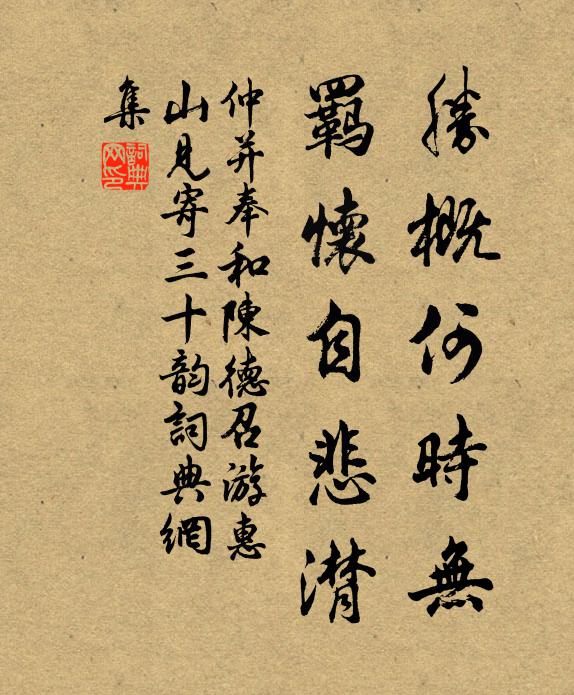 勝概何時無
羈懷自悲潸
仲并奉和陳德召游惠
山見寄三十韵詞典網
集
詞典网印